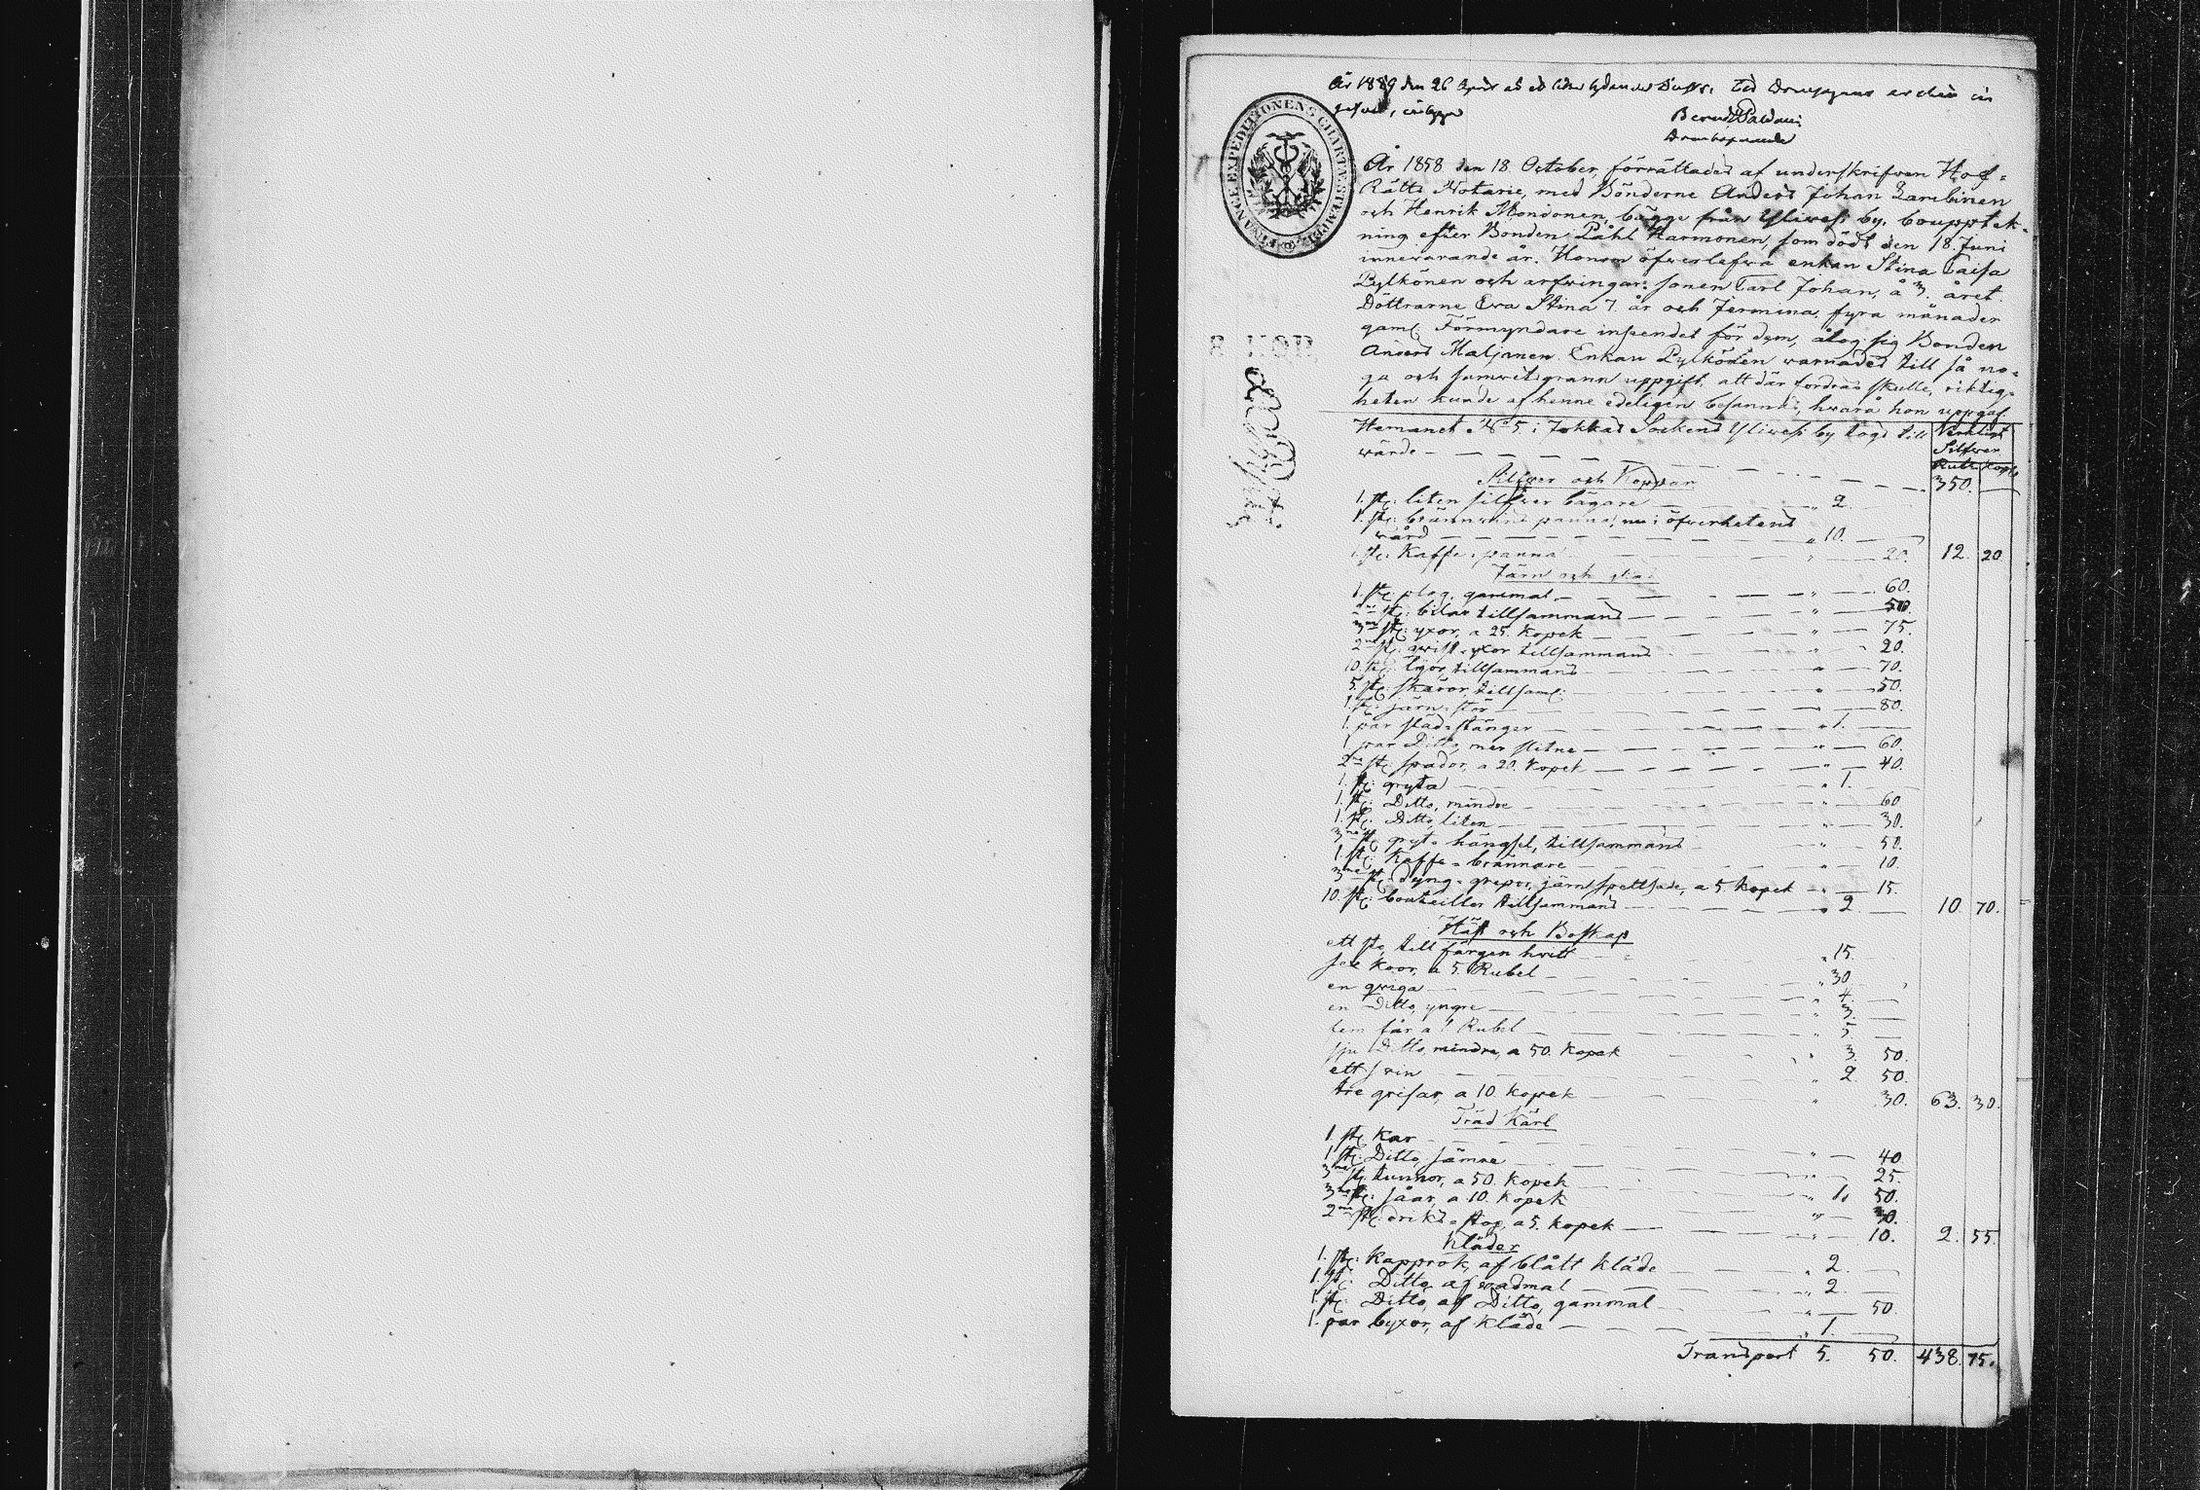 År 1889 den 26
Bernd Paldani
År 1858 den 18 October, förrättades af underskrifven Hof-
Rätts Notarie, med Bönderne Anders Johan
och Henrik Mononen, bägge från Ylivesi by, bouppteck-
ning efter Bonden Påhl Harmonen, som dödt den 18 Juni
innevarande år. Honom öfverlefva enkan Stina Caisa
Pylkönen och arfvingar: sonen Carl Johan, å 3. året.
Döttrarne Eva Stina 7. år och Jermina, fyra månader
gaml. Förmyndare inpendet för dem, åtog sig Bonden
Anders Maljanen. Enkan Pylkönen varnades till så no-
ga och samvitsgrann uppgift, att där fordras skulle, riktig-
heten kunde af henne edeligen besannas, hvarå hon uppgaf.
Hemanet No 5 i Jokkas Sockens Ylivesi by togs till
Silfver
Rub. Kop.
värde 350.
Silfver och Koppar
1. st. liten silfver bägare " 2.
1. st. brännvins panna, nu i öfverhetens
vård " 10.
1. st. Kaffe-panna " 20. 12. 20
Järn och
1. st. plog, gammal " 60.
2ne st. bilar tillsammans " 50.
3ne st. yxor, a 25. Kopek " 75.
2ne st. qvist-yxor tillsammans " 20.
10. st. lyor, tillsammans " 70.
5. st. skäror, tillsam. " 50.
1. st. järn-stör " 80.
1. par städ-stänger " 1.
1 par Ditto, mer slitne " 60.
2ne st. spador, a 20. Kopek " 40.
1. st. gryta " 1.
1. st. Ditto, mindre " 60
1. st. Ditto liten " 30.
3ne st. gryt-hängsel, tillsammans " 50.
1. st. Kaffe-brännare " 10.
3ne st. dyng-grepor, järn spettsade, a 5 Kopek " 15.
10. st. bouteiller tillsammans " 2 10. 70.
Häst och Boskap
ett sto, till färgen hvitt " 15.
sex koor, a 5. Rubel " 30
en qviga " 4.
en Ditto, yngre " 3.
fem får a 1 Rubel " 5
sju Ditto, mindre, a 50. Kopek " 3. 50.
ett svin " 2 50.
tre grisar, a 10 Kopek " 30. 63. 30.
Träd Kärl
1 st. Kar
1 st. Ditto, sämre " 40.
3ne st. tunnor, a 50. Kopek " 25.
3ne st. såar, a 10. Kopek " 1. 50.
2ne st. driks-stop, a 5. Kopek " 30.
10. 2. 55.
Kläder
1. st. Kapprok, af blått kläde " 2.
1. st. Ditto, af vadmal " 2.
1. st. Ditto, af Ditto, gammal " 50
1. par byxor, af kläde " 1.
Transport 5. 50. 438. 75.
FINANCE EXPEDITIONENS CHARTÆ STEMPEL